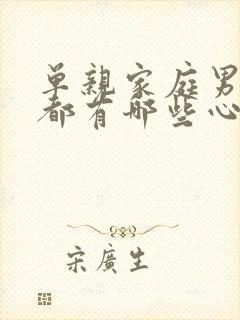 單親家庭男
都有哪些心
宋廣生